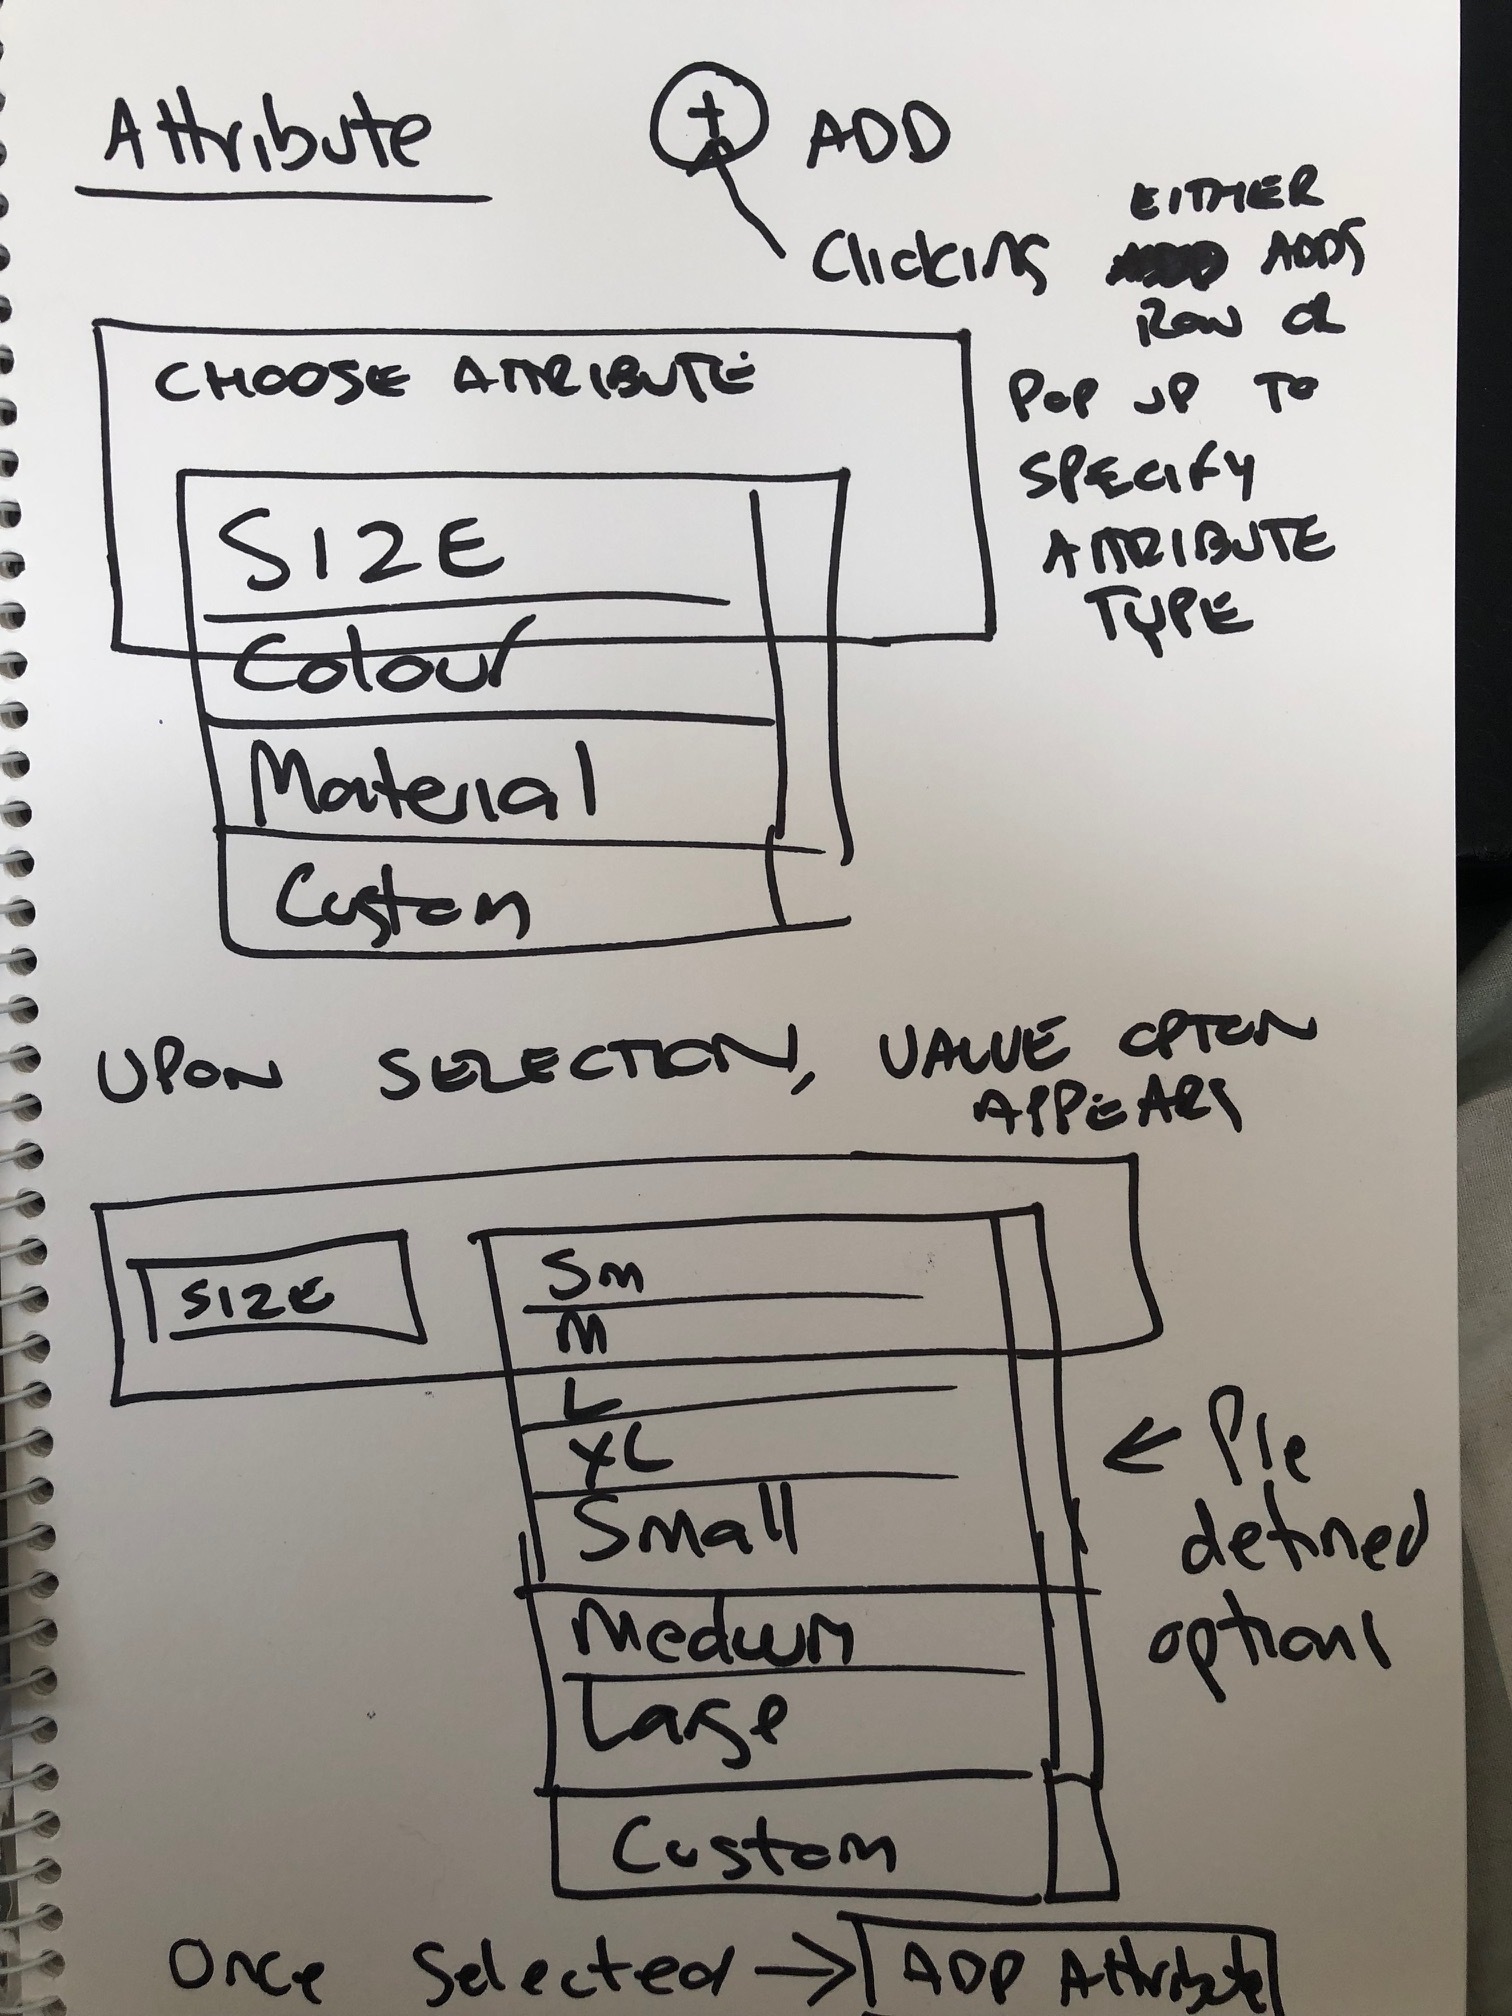 Attribute
+ ADD
Clicking EITHER
ADDS
ROW OR
POP UP TO
SPECIFY
ATTRIBUTE
TYPE
CHOOSE ATTRIBUTE
SIZE
Colour
Material
Custom
UPON SELECTION, VALUE OPTION
APPEARS
SIZE
Sm
M
L
XL
Small
Medium
Large
Custom
← Pre
defined
options
Once Selected → ADD Attribute